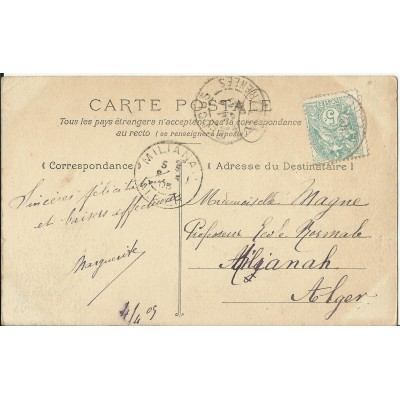 CARTE POSTALE
Tous les pays étrangers n'acceptent pas la correspondance
au recto (se renseigner à la poste)
Correspondance
Adresse du Destinataire
MILIANA
5
Sincères félicitations
et baisers affectueux
Marguerite
4/4 05
Mademoiselle Magne
Professeur Ecole Normale
Milianah
Alger
5